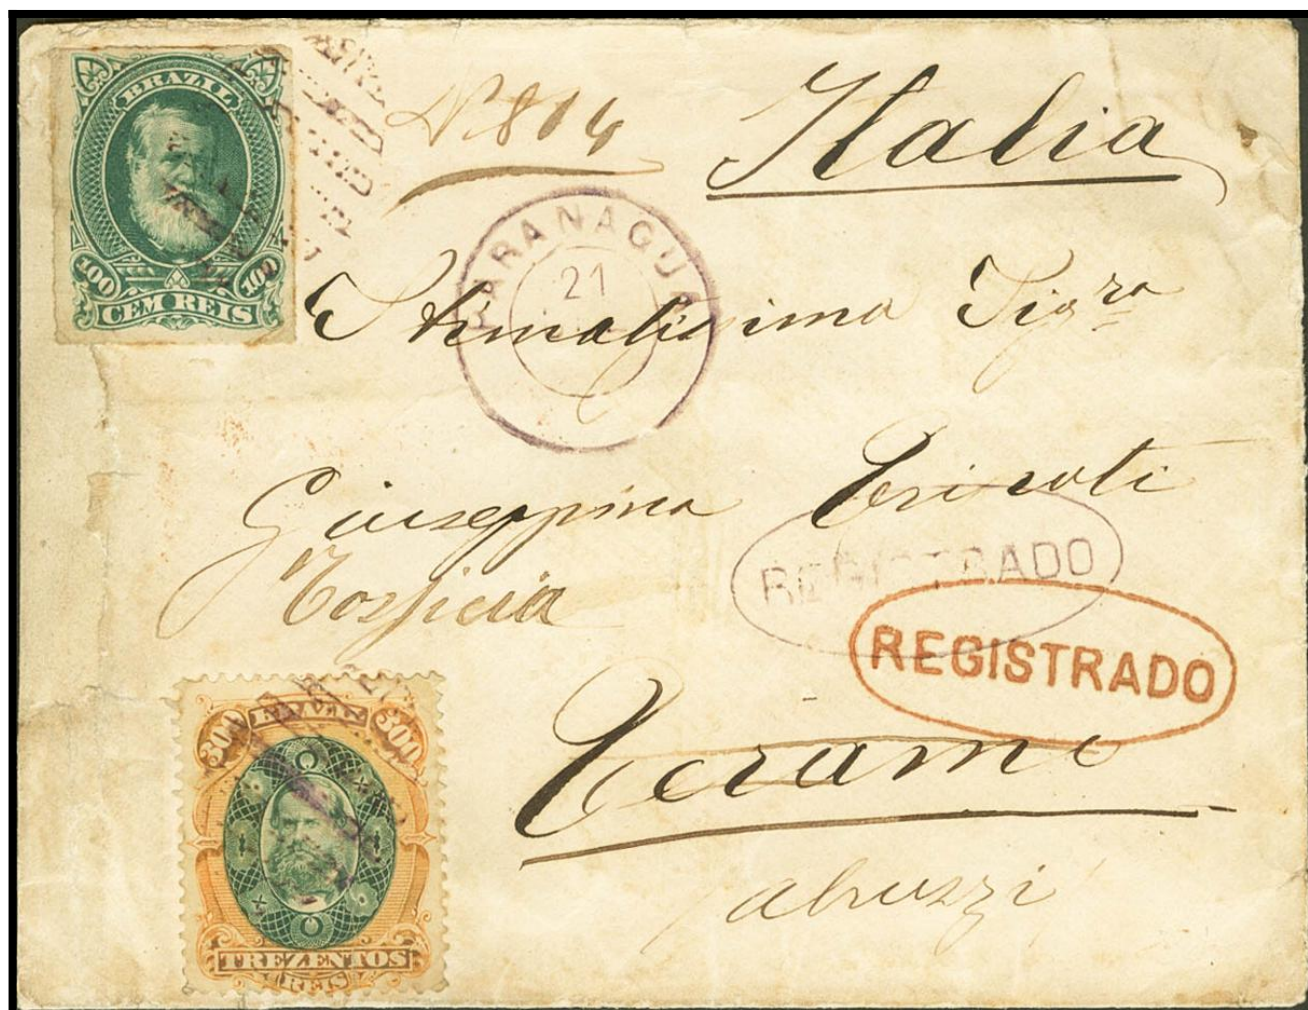 BRAZIL
100 100
CEM REIS
N 814
Italia
PARANAGUÁ
21
Stimatissima Sigra
Giuseppina
Tossicia
REGISTRADO
REGISTRADO
Teramo
abruzzi
300 BRAZIL 300
TREZENTOS
REIS